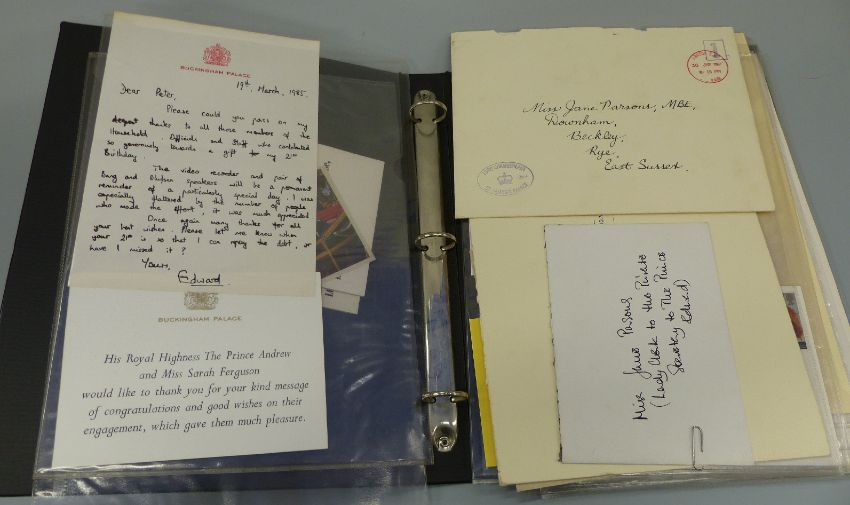 BUCKINGHAM PALACE
19th, March, 1985.
Dear Peter,
Please could you pass on my
deepest thanks to all those members of the
Household, Officials and Staff who contributed
so generously towards a gift for my 21st
Birthday.
The video recorder and pair of
Bang and Olufsen speakers will be a permanent
reminder of a particularly special day. I was
especially flattered by the number of people
who made the effort; it was much appreciated
Once again many thanks for all
your best wishes. Please let me know when
your 21st is so that I can repay the debt, or
have I missed it?
Yours,
Edward
BUCKINGHAM PALACE
His Royal Highness The Prince Andrew
and Miss Sarah Ferguson
would like to thank you for your kind message
of congratulations and good wishes on their
engagement, which gave them much pleasure.
Miss Jane Parsons, MBE,
Downham,
Beckley,
Rye,
East Sussex.
LORD CHAMBERLAIN
ST. JAMES'S PALACE
Miss Jane Parsons
(Lady Clerk to the Private
Secretary to The Prince
Edward)